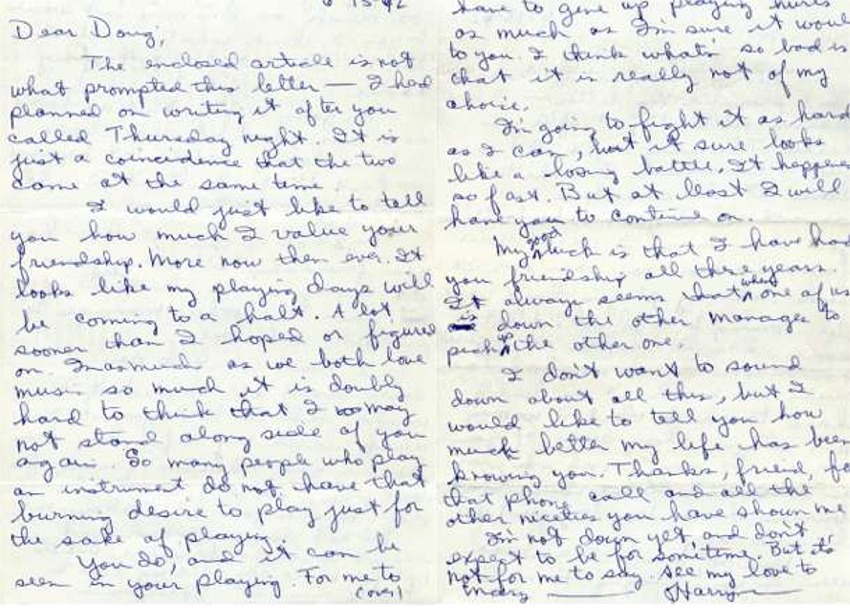 6 15-92
Dear Doug,
The enclosed article is not
what prompted this letter — I had
planned on writing it after you
called Thursday night. It is
just a coincidence that the two
came at the same time
I would just like to tell
you how much I value your
friendship. More now then ever. It
looks like my playing days will
be coming to a halt. A lot
sooner than I hoped or figured
on. Inasmuch as we both love
music so much it is doubly
hard to think that I may
not stand along side of you
again. So many people who play
an instrument do not have that
burning desire to play just for
the sake of playing.
You do, and it can be
seen in your playing. For me to
(over)
have to give up playing hurts
as much as I'm sure it would
to you. I think whats so bad is
that it is really not of my
choice.
I'm going to fight it as hard
as I can, but it sure looks
like a losing battle. It happened
so fast. But at least I will
have you to continue on.
My good luck is that I have had
you friendship all these years.
It always seems that when one of us
is down the other manages to
pick up the other one.
I don't want to sound
down about all this, but I
would like to tell you how
much better my life has been
knowing you. Thanks, friend, for
that phone call and all the
other niceties you have shown me
I'm not down yet, and don't
expect to be for sometime. But its
not for me to say. See my love to
Mary — Harry